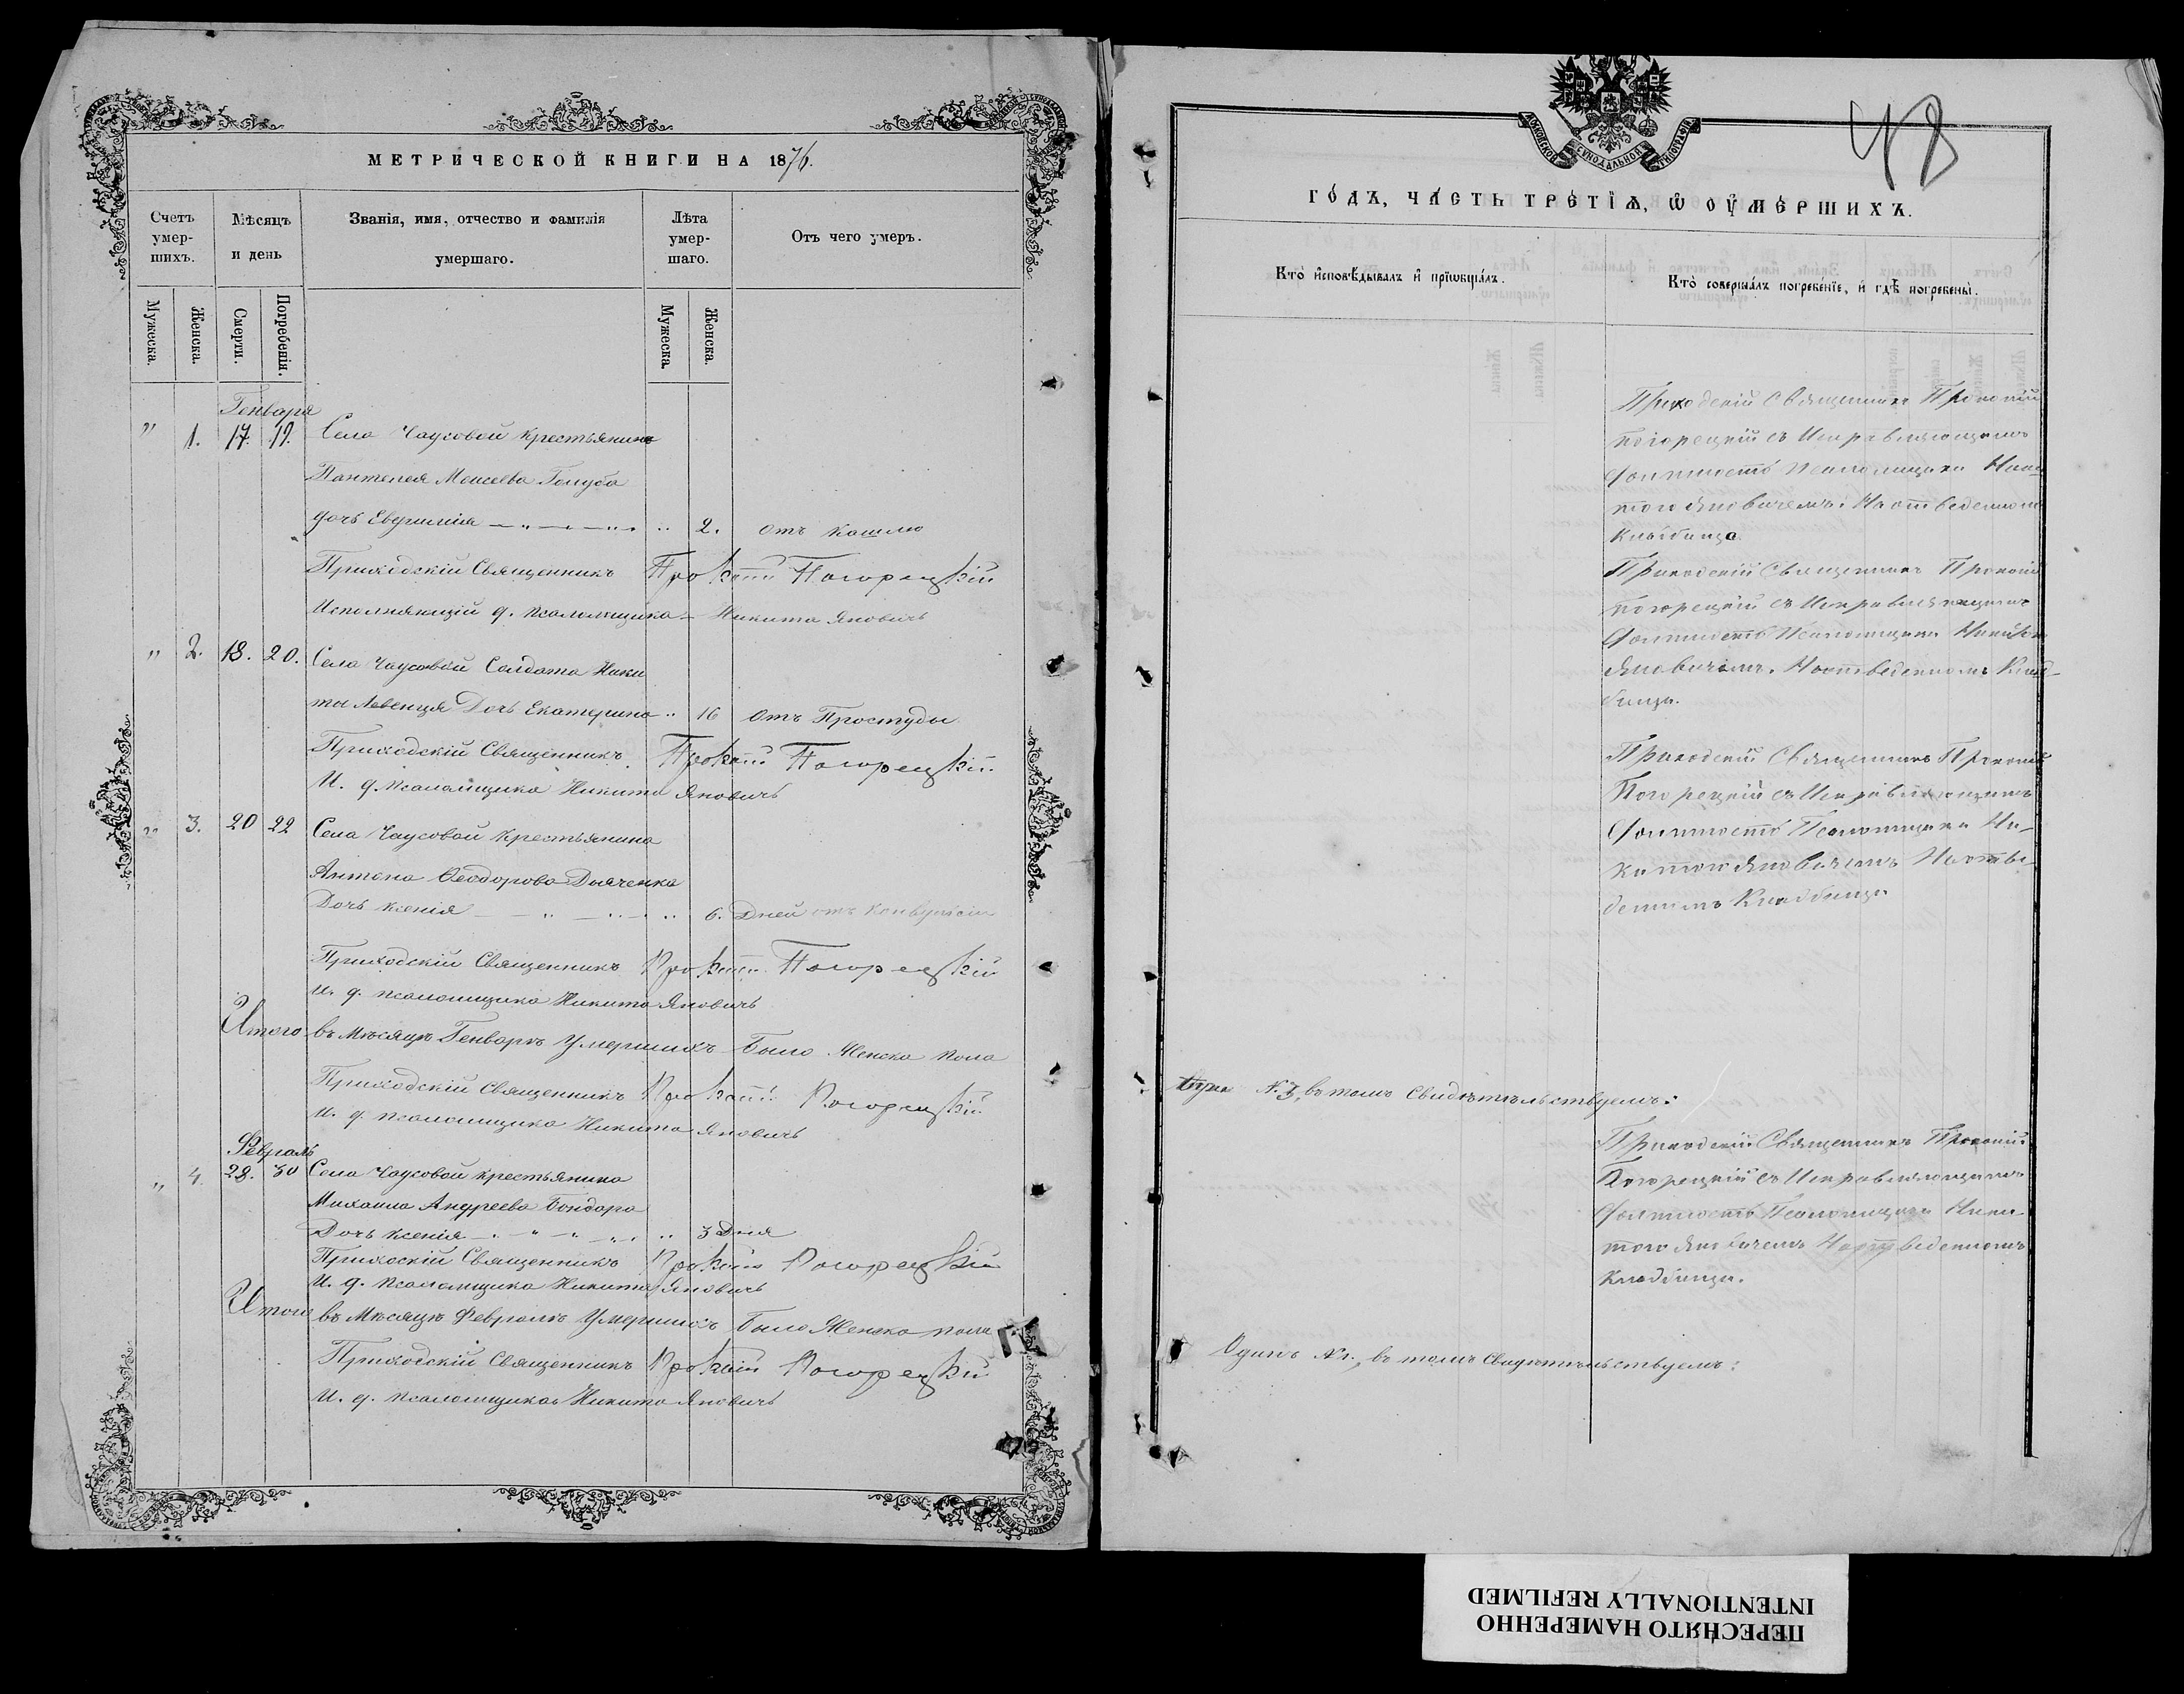 МЕТРИЧЕСКОЙ КНИГИ НА 1876.
Счетъ умер-шихъ.
Мѣсяцъ и день
Званія, имя, отчество и фамилія умершаго.
Лѣта умер-шаго.
Отъ чего умеръ.
Мужеска.
Женска.
Смерти.
Погребенія.
Мужеска.
Женска.
Генваря
" 1. 17. 19. Села Чаусовой крестьянина
Пантелея Моисеева Голуба
дочь Евфимія — " — " — " .. 2. отъ кашлю
Приходскій Священникъ Прокопій Погорецкій
Исполняющій д. псаломщика – Никита Яновичъ
" 2. 18. 20. Села Чаусовой Солдата Ники
ты Левенця Дочь Екатерина .. 16 отъ Простуды
Приходскій Священникъ Прокопій Погорецкій
И. д. псаломщика Никита Яновичъ
" 3. 20 22 Села Чаусовой крестьянина
Антона Ѳеодорова Дьяченка
Дочь Ксенія — " — " — .. 6. Дней отъ конвульсіи
Приходскій Священникъ Прокопій Погорецкій
И. д. псаломщика Никита Яновичъ
Итого въ Мѣсяцѣ Генварѣ Умершихъ Было Женска пола
Приходскій Священникъ Прокопій Погорецкій
И. д. псаломщика Никита Яновичъ
Февраль
" 4. 28. 30 Села Чаусовой крестьянина
Михаила Андреева Бондара
Дочь Ксенія — " — " — .. 3 Дня
Прихоскій Священникъ Прокопій Погорецкій
И. д. псаломщика Никита Яновичъ
Итого въ Мѣсяцѣ Февралѣ Умершихъ Было Женска пола
Приходскій Священникъ Прокопій Погорецкій
И. д. псаломщика Никита Яновичъ
48
МОСКОВСКОЙ СѴНОДАЛЬНОЙ ТИПОГРАФІИ
ГО́ДЪ, ЧА́СТЬ ТРЕ́ТІѦ, Ѽ ОУ҆МЕ́РШИХЪ.
Кто̀ и҆сповѣ́дывалъ и҆ прїѡбща́лъ.
Кто̀ соверша́лъ погребе́нїе, и҆ гдѣ̀ погребены̀.
Приходскій Священникъ Прокопій
Погорецкій съ Исправляющимъ
Должность Псаломщика Ники-
тою Яновичемъ. На отведенномъ
Кладбищѣ.
Приходскій Священникъ Прокопій
Погорецкій съ Исправляющимъ
Должность Псаломщика Никитою
Яновичемъ. На отведенномъ Клад-
бищѣ.
Приходскій Священникъ Прокопій
Погорецкій съ Исправляющимъ
Должность Псаломщика Ни-
китою Яновичемъ На отве-
денномъ Кладбищѣ
N. 3, въ томъ Свидѣтельствуемъ:
Приходскій Священникъ Прокопій
Погорецкій съ Исправляющимъ
Должность Псаломщика Ники-
тою Яновичемъ На отведенномъ
Кладбищѣ.
Одинъ N 1., въ томъ Свидѣтельствуемъ:
ПЕРЕСНЯТО НАМЕРЕННО
INTENTIONALLY REFILMED